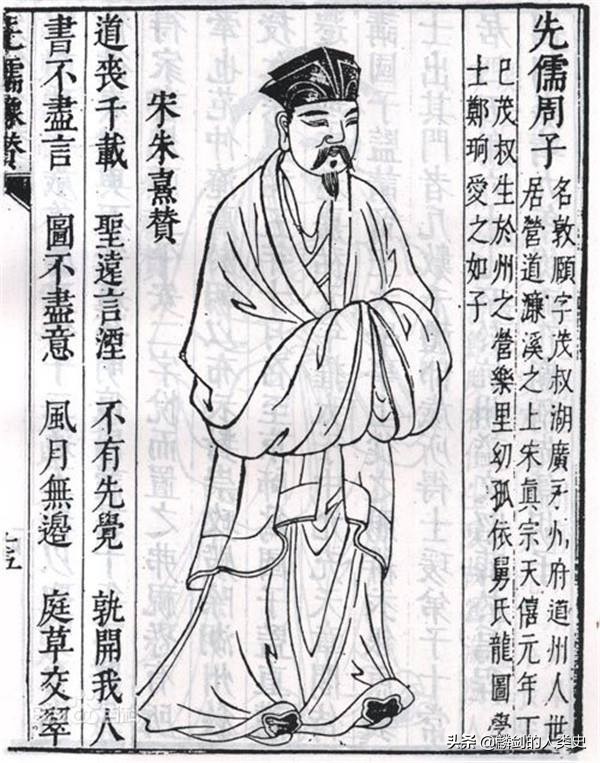 先儒周子
名敦頤字茂叔湖廣永州府道州人世
居營道濂溪之上宋真宗天僖元年丁
巳茂叔生於州之營樂里幼孤依舅氏龍圖學
士鄭珦愛之如子
宋朱熹賛
道喪千載 聖遠言湮 不有先覺 孰開我人
書不盡言 圖不盡意 風月無邊 庭草交翠
先儒像賛
头条 @麟剑的人类史